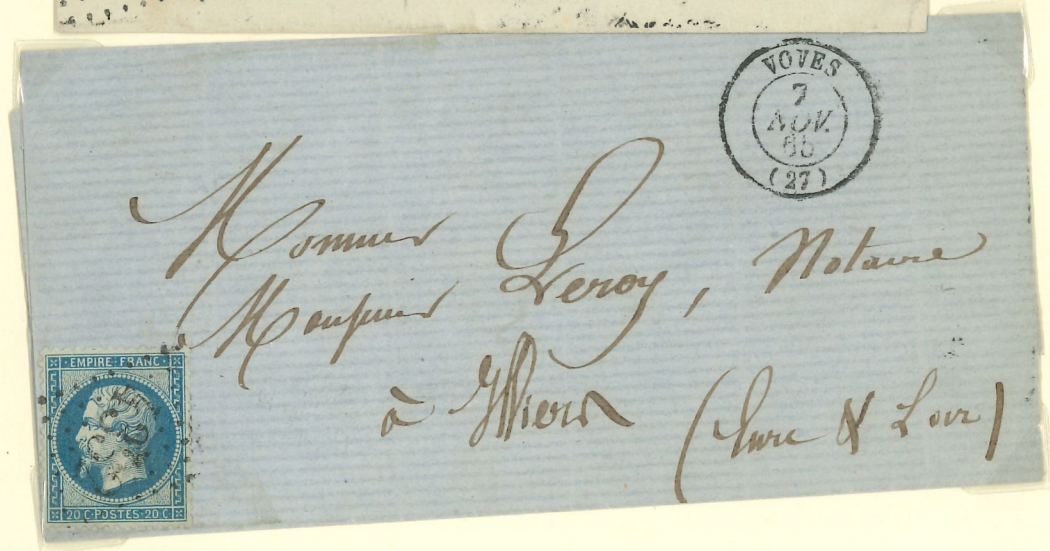 VOVES
7
NOV.
65
(27)
Monsieur
Monsieur Leroy, Notaire
à Illiers
(Eure & Loir)
EMPIRE FRANC
20 C POSTES 20 C